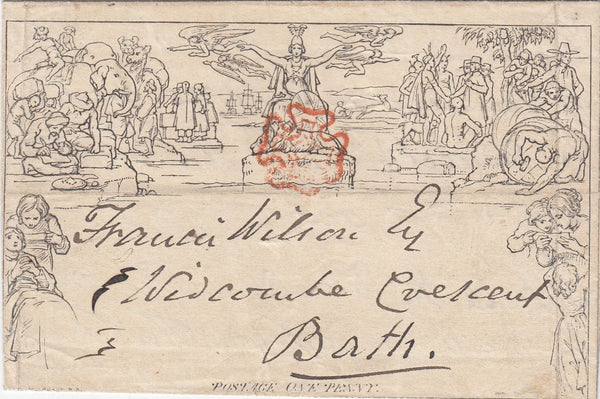 Francis Wilson Esq
8 Widcombe Crescent
Bath.
POSTAGE ONE PENNY.